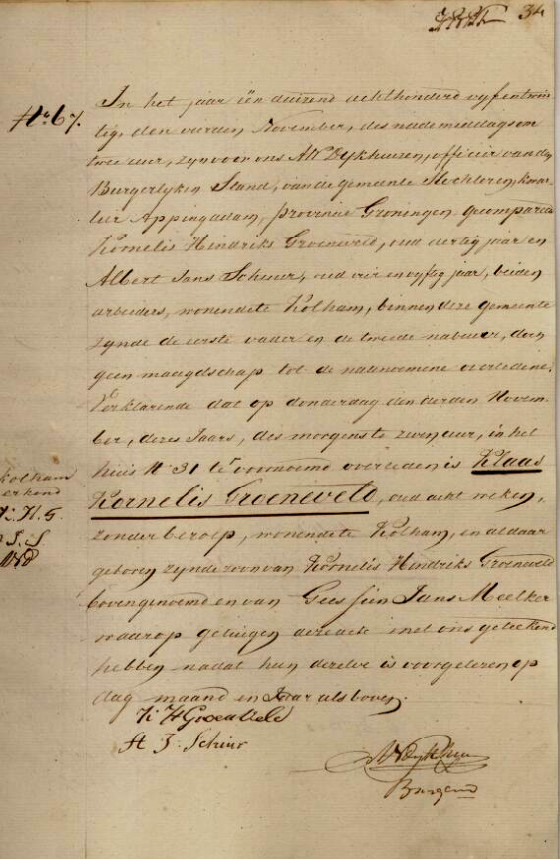 34
N° 67.
In het jaar een duizend achthonderd vyfentwin
tig, den vierden November, des nademiddags om
twee uur, zyn voor ons AH Dykhuizen, officier van den
Burgerlyken Stand, van de gemeente Slochteren, kwar
tier Appingadam, provincie Groningen gecompareerd
Kornelis Hindriks Groeneveld, oud dertig jaar en
Albert Jans Scheuer, oud vier en vyftig jaar, beiden
arbeiders, wonende te Kolham, binnen deze gemeente
zynde de eerste vader en de tweede nabuur, doch
geen maagdschap tot de natenoemene overledene,
Verklarende dat op donderdag den derden Novem
ber, dezes Jaars, des morgens te zeven uur, in het
huis N 31 te voornoemd overleden is Klaas
Kornelis Groeneveld, oud acht weken,
zonder beroep, wonende te Kolham, en aldaar
geboren zynde zoon van Kornelis Hindriks Groeneveld
bovengenoemd en van Geessien Jans Meelker
waarop getuigen deze acte met ons geteekend
hebben nadat hun dezelve is voorgelezen op
dag maand en Jaar als boven.
Kolham
erkend
K. H. G.
J. S
K H Groeneveld
A J. Scheur
AH Dykhuizen
Burgem